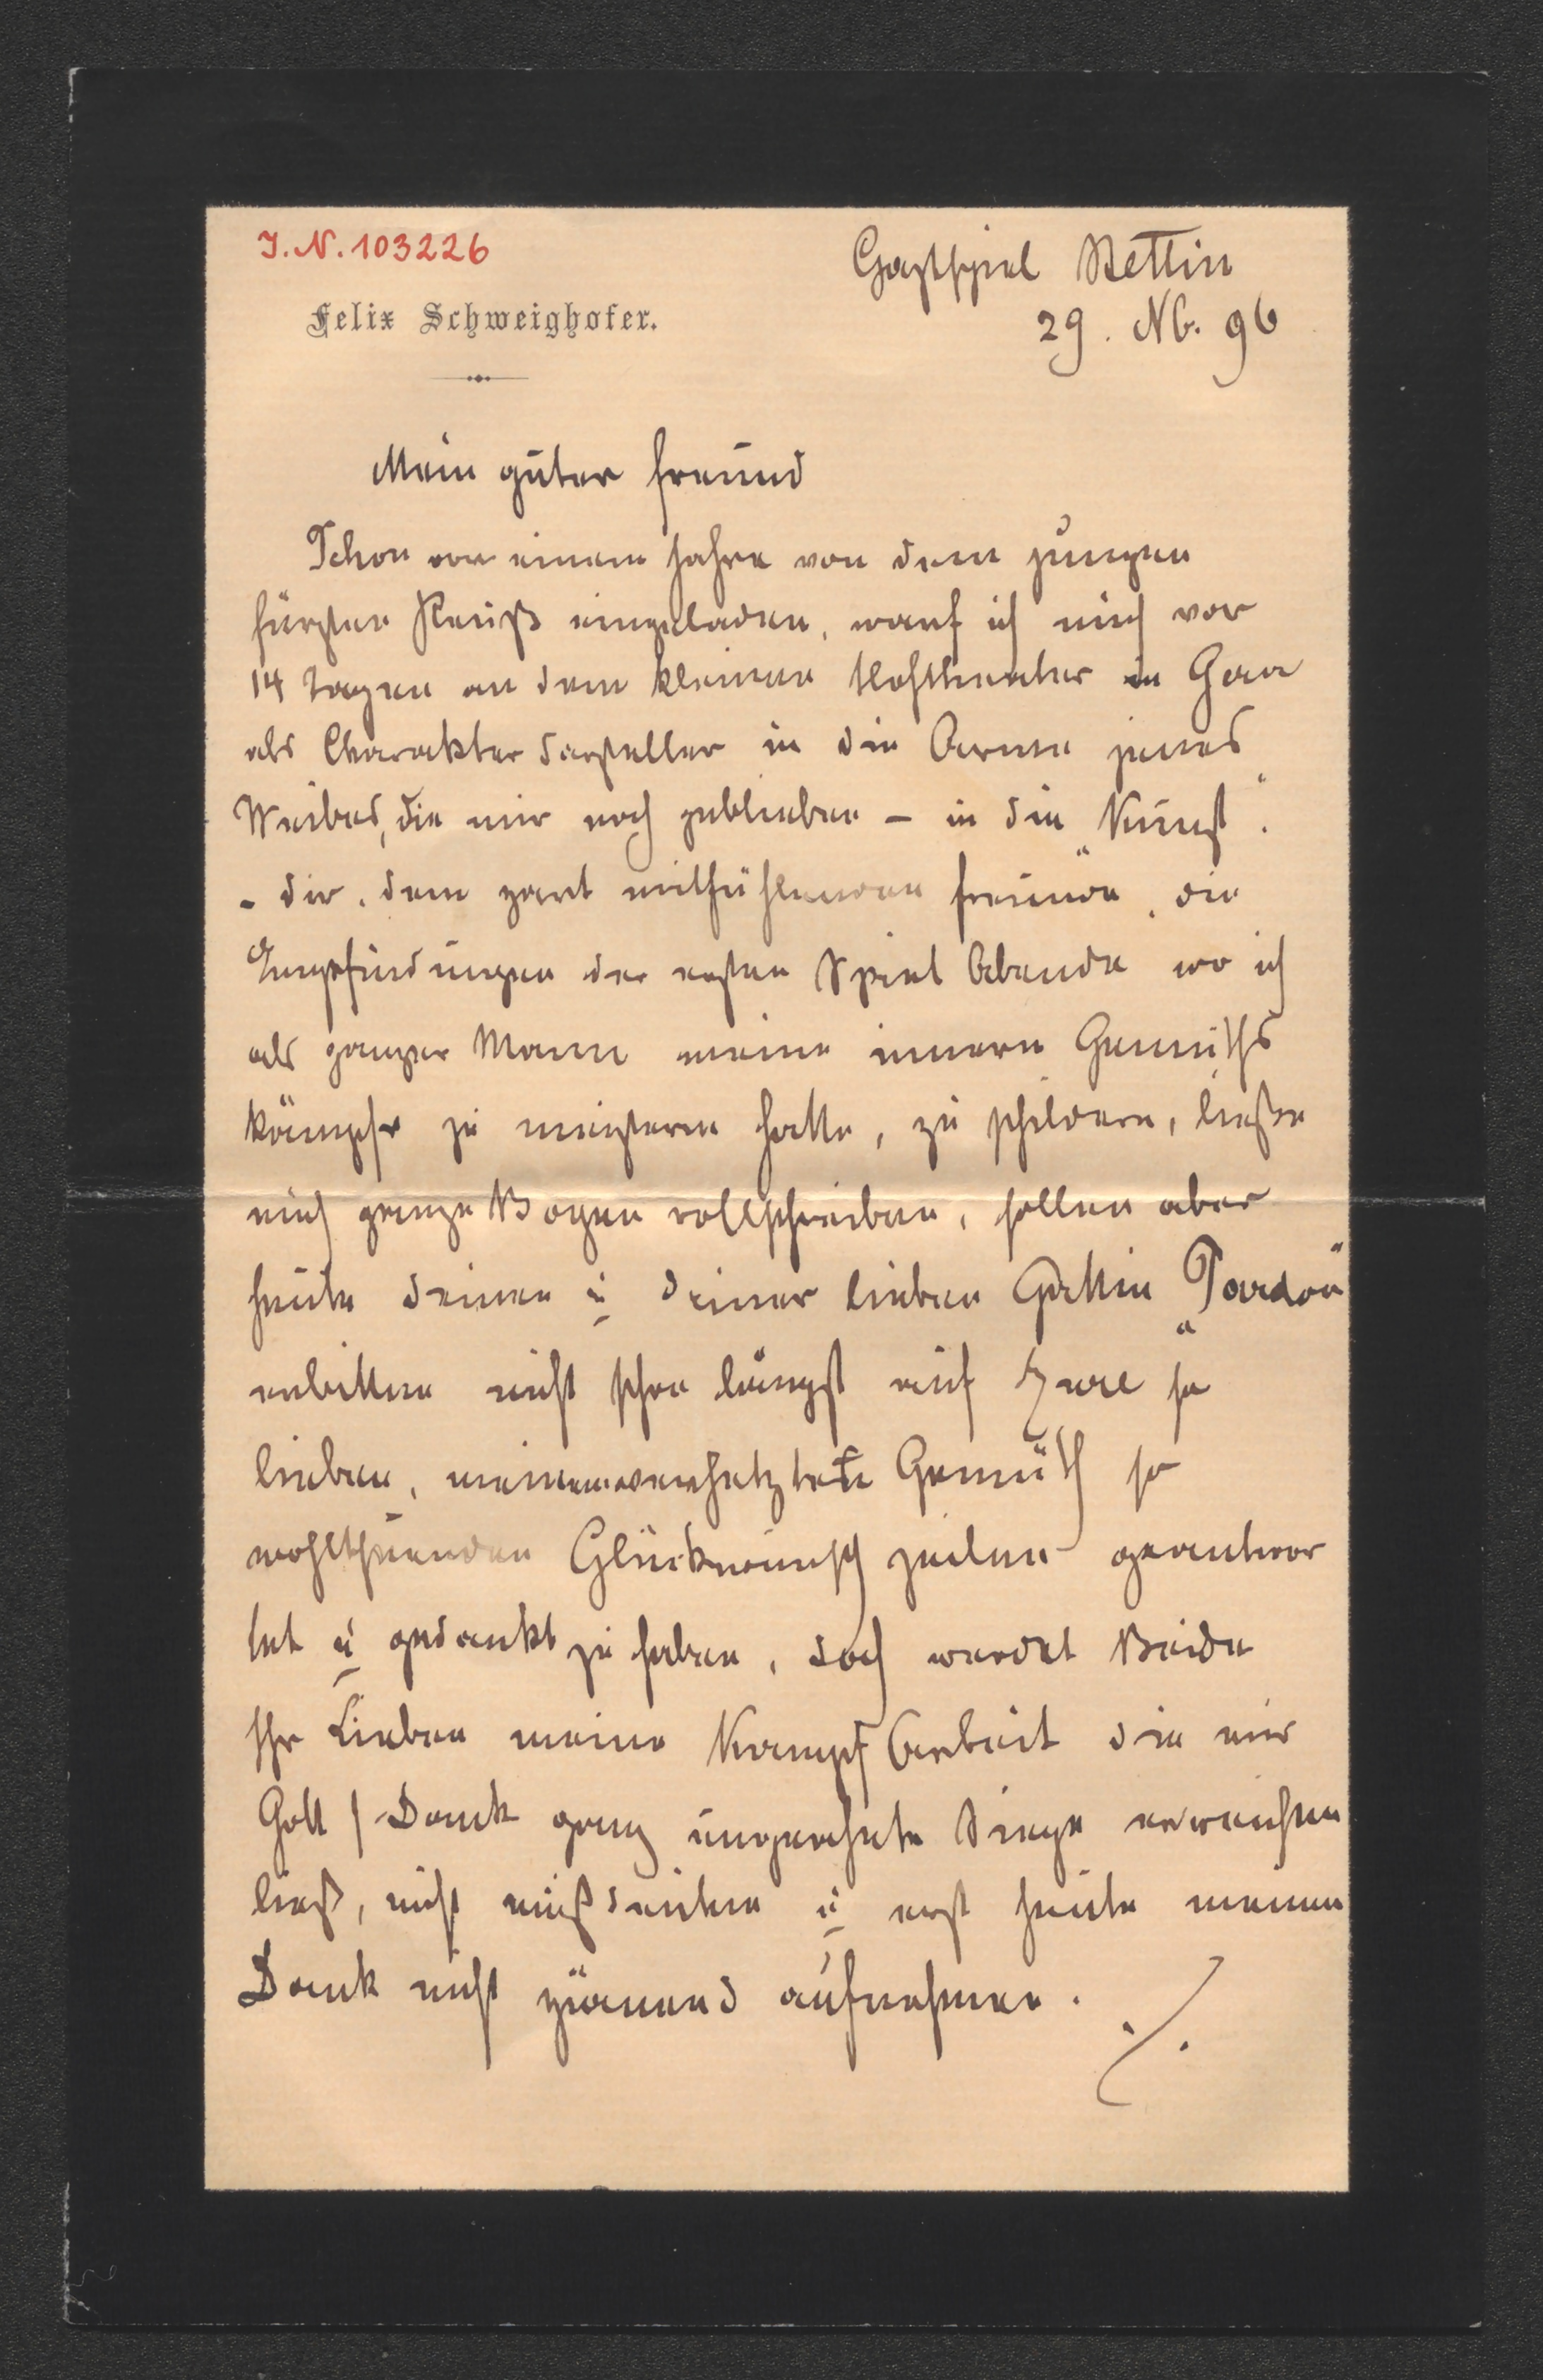 I.N. 103226
Felix Schweighofer.
Gastspiel Stettin
29. Nb. 96
Mein guter Freund
Schon vor einem Jahre von dem jungen
Fürsten Reuß eingeladen, warf ich mich vor
14 Tagen an dem kleinen Hoftheater in Gera
als Charakter Darsteller in die Arme jenes
Weibes, die mir noch geblieben – in die „Kunst".
- dir, dem zart mitfühlenden Freunde, die
Empfindungen der ersten Spiel Abende wo ich
als ganzer Mann meine innern Gemüths
kämpfe zu meistern hatte, zu schildern, ließe
mich ganze Bogen vollschreiben, sollen aber
heute deiner u deiner lieben Gattin „Pardon"
erbitten nicht schon längst auf Eure so
lieben, meinem Gemüth so
wohlthuenden Glückwunsch zeilen geantwor
tet u gedankt zu haben, doch werdet Beide
Ihr Lieben meine Kampf Arbeit die mir
Gott / Dank ganz ungeahnte Siege erreichen
ließ, nicht mißdeuten u erst heute meinen
Dank nicht zürnend aufnehmen.
./.